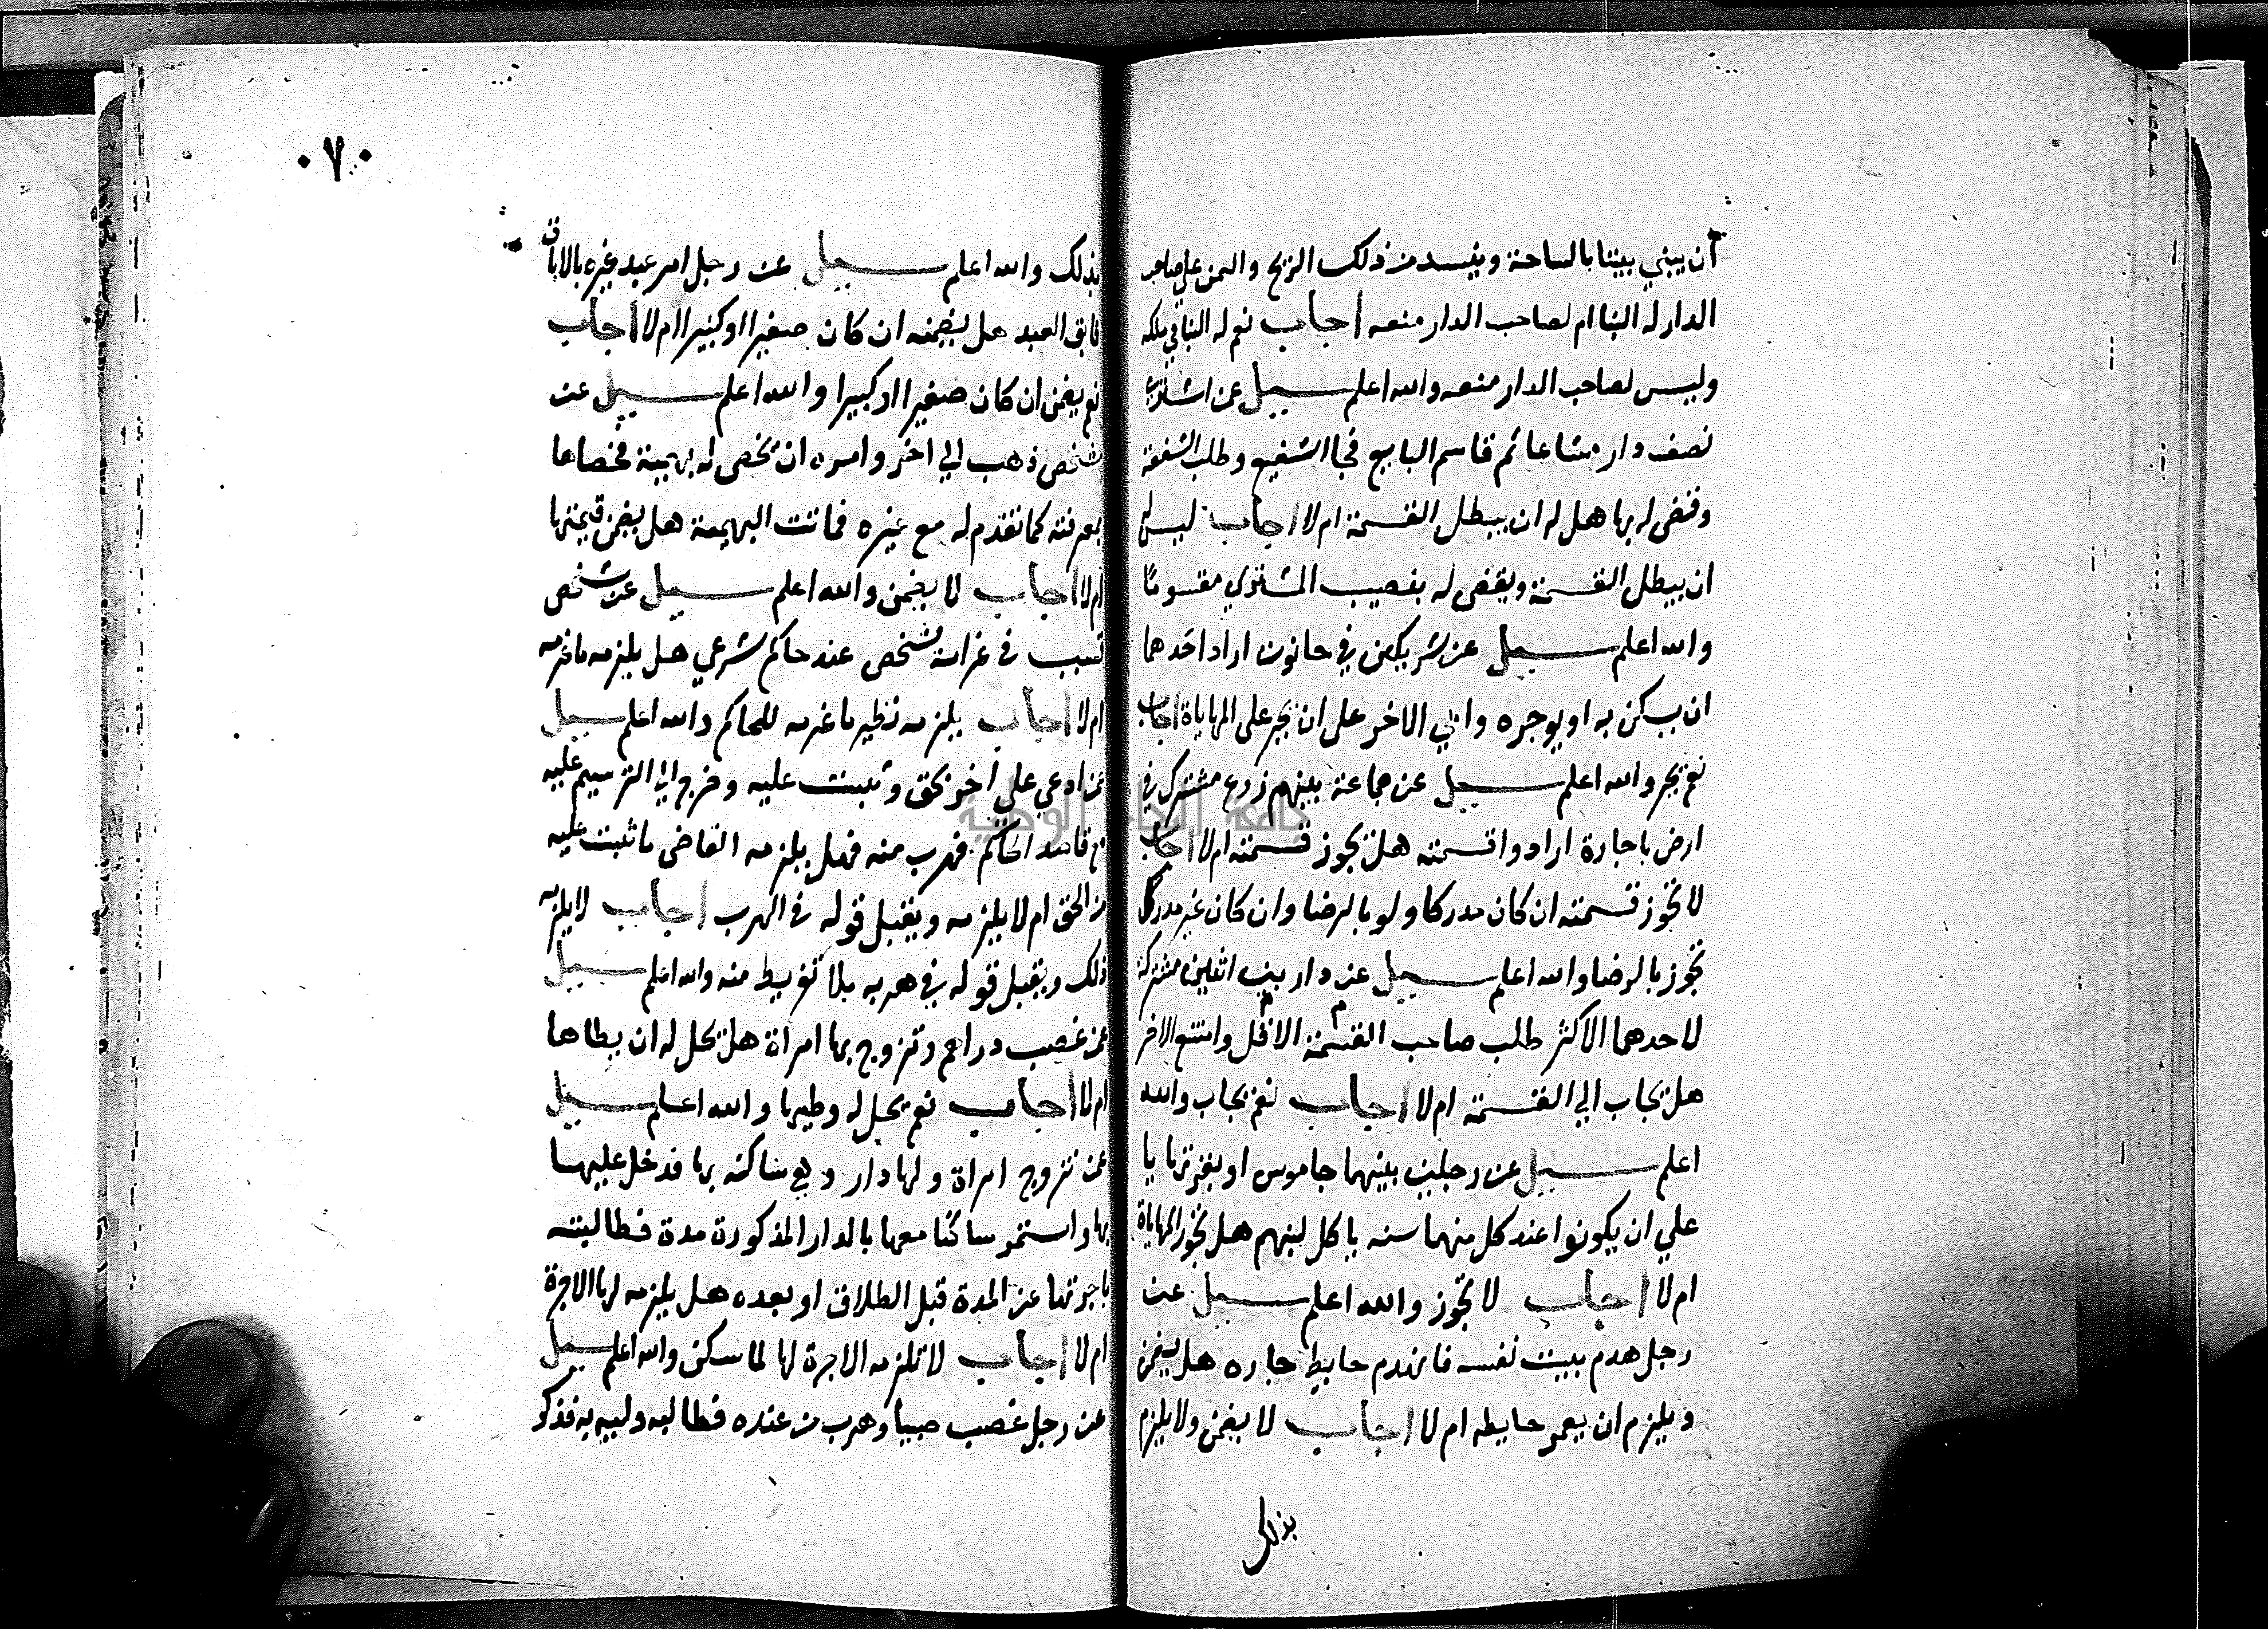 أن يبني بيتا بالساحة ويفسد من ذلك الريح والشمس علي صاحب
الدار له البنا ام لصاحب الدار منعه اجاب نعم له البنا في ملكه
وليس لصاحب الدار منعه والله اعلم سيل عن اشتري
نصف دار مشاعا ثم قاسم البايع فجا الشفيع وطلب الشفعة
وقضى له بها هل له ان يبطل القسمة ام لا اجاب ليس له
ان يبطل القسمة ويقضى له بنصيب المشتري مقسوما
والله اعلم سيل عن شريكين في حانوت اراد احدهما
ان يسكن به او يوجره وابي الاخر على ان يجبر على المهاياة اجاب
نعم يجبر والله اعلم سيل عن جماعة بينهم زرع مشترك في
ارض باجارة ارادوا قسمته هل تجوز قسمته ام لا اجاب
لا تجوز قسمته ان كان مدركا ولو بالرضا وان كان غير مدرك
تجوز بالرضا والله اعلم سيل عن دار بين اثنين مشتركة
لاحدهما الاكثر طلب صاحب القسمة الاقل وامتنع الاخر
هل يجاب الي القسمة ام لا اجاب نعم يجاب والله
اعلم سيل عن رجلين بينهما جاموس او بقر تهايا
علي ان يكونوا عند كل منهما سنه ياكل لبنهم هل تجوز المهاياة
ام لا اجاب لا تجوز والله اعلم سيل عن
رجل هدم بيت نفسه فانهدم حايط جاره هل يضمن
ويلزم ان يعمر حايطه ام لا اجاب لا يضمن ولا يلزم
بذلك
٠٧٠
بذلك والله اعلم سيل عن رجل امر عبد غيره بالاباق
فابق العبد هل يضمنه ان كان صغيرا او كبيرا ام لا اجاب
نعم يضمن ان كان صغيرا او كبيرا والله اعلم سيل عن
شخص ذهب الي اخر وامره ان يخصى له بهيمة فخصاها
بمعرفته كما تقدم له مع غيره فماتت البهيمة هل يضمن قيمتها
ام لا اجاب لا يضمن والله اعلم سيل عن شخص
تسبب في غرامة شخص عند حاكم شرعي هل يلزمه ما غرمه
ام لا اجاب يلزمه نظير ما غرمه للحاكم والله اعلم سيل
عمن ادعي علي اخر بحق وثبت عليه وخرج الي الترسيم عليه
مع قاصد الحاكم فهرب منه فهل يلزمه القاضى ما ثبت عليه
من الحق ام لا يلزمه ويقبل قوله في الهرب اجاب لا يلزمه
ذلك ويقبل قوله في هربه بلا تفريط منه والله اعلم سيل
عمن غصب دراهم وتزوج بها امراة هل يحل له ان يطاها
ام لا اجاب نعم يحل له وطيها والله اعلم سيل
عمن تزوج امراة ولها دار وهي ساكنه بها فدخل عليها
بها واستمر ساكنا معها بالدار المذكورة مدة فطالبته
باجرتها عن المدة قبل الطلاق او بعده هل يلزمه لها الاجرة
ام لا اجاب لا تلزمه الاجرة لها لما سكن والله اعلم سيل
عن رجل غصب صبيا وهرب من عنده فطالبه وليه به فذكر